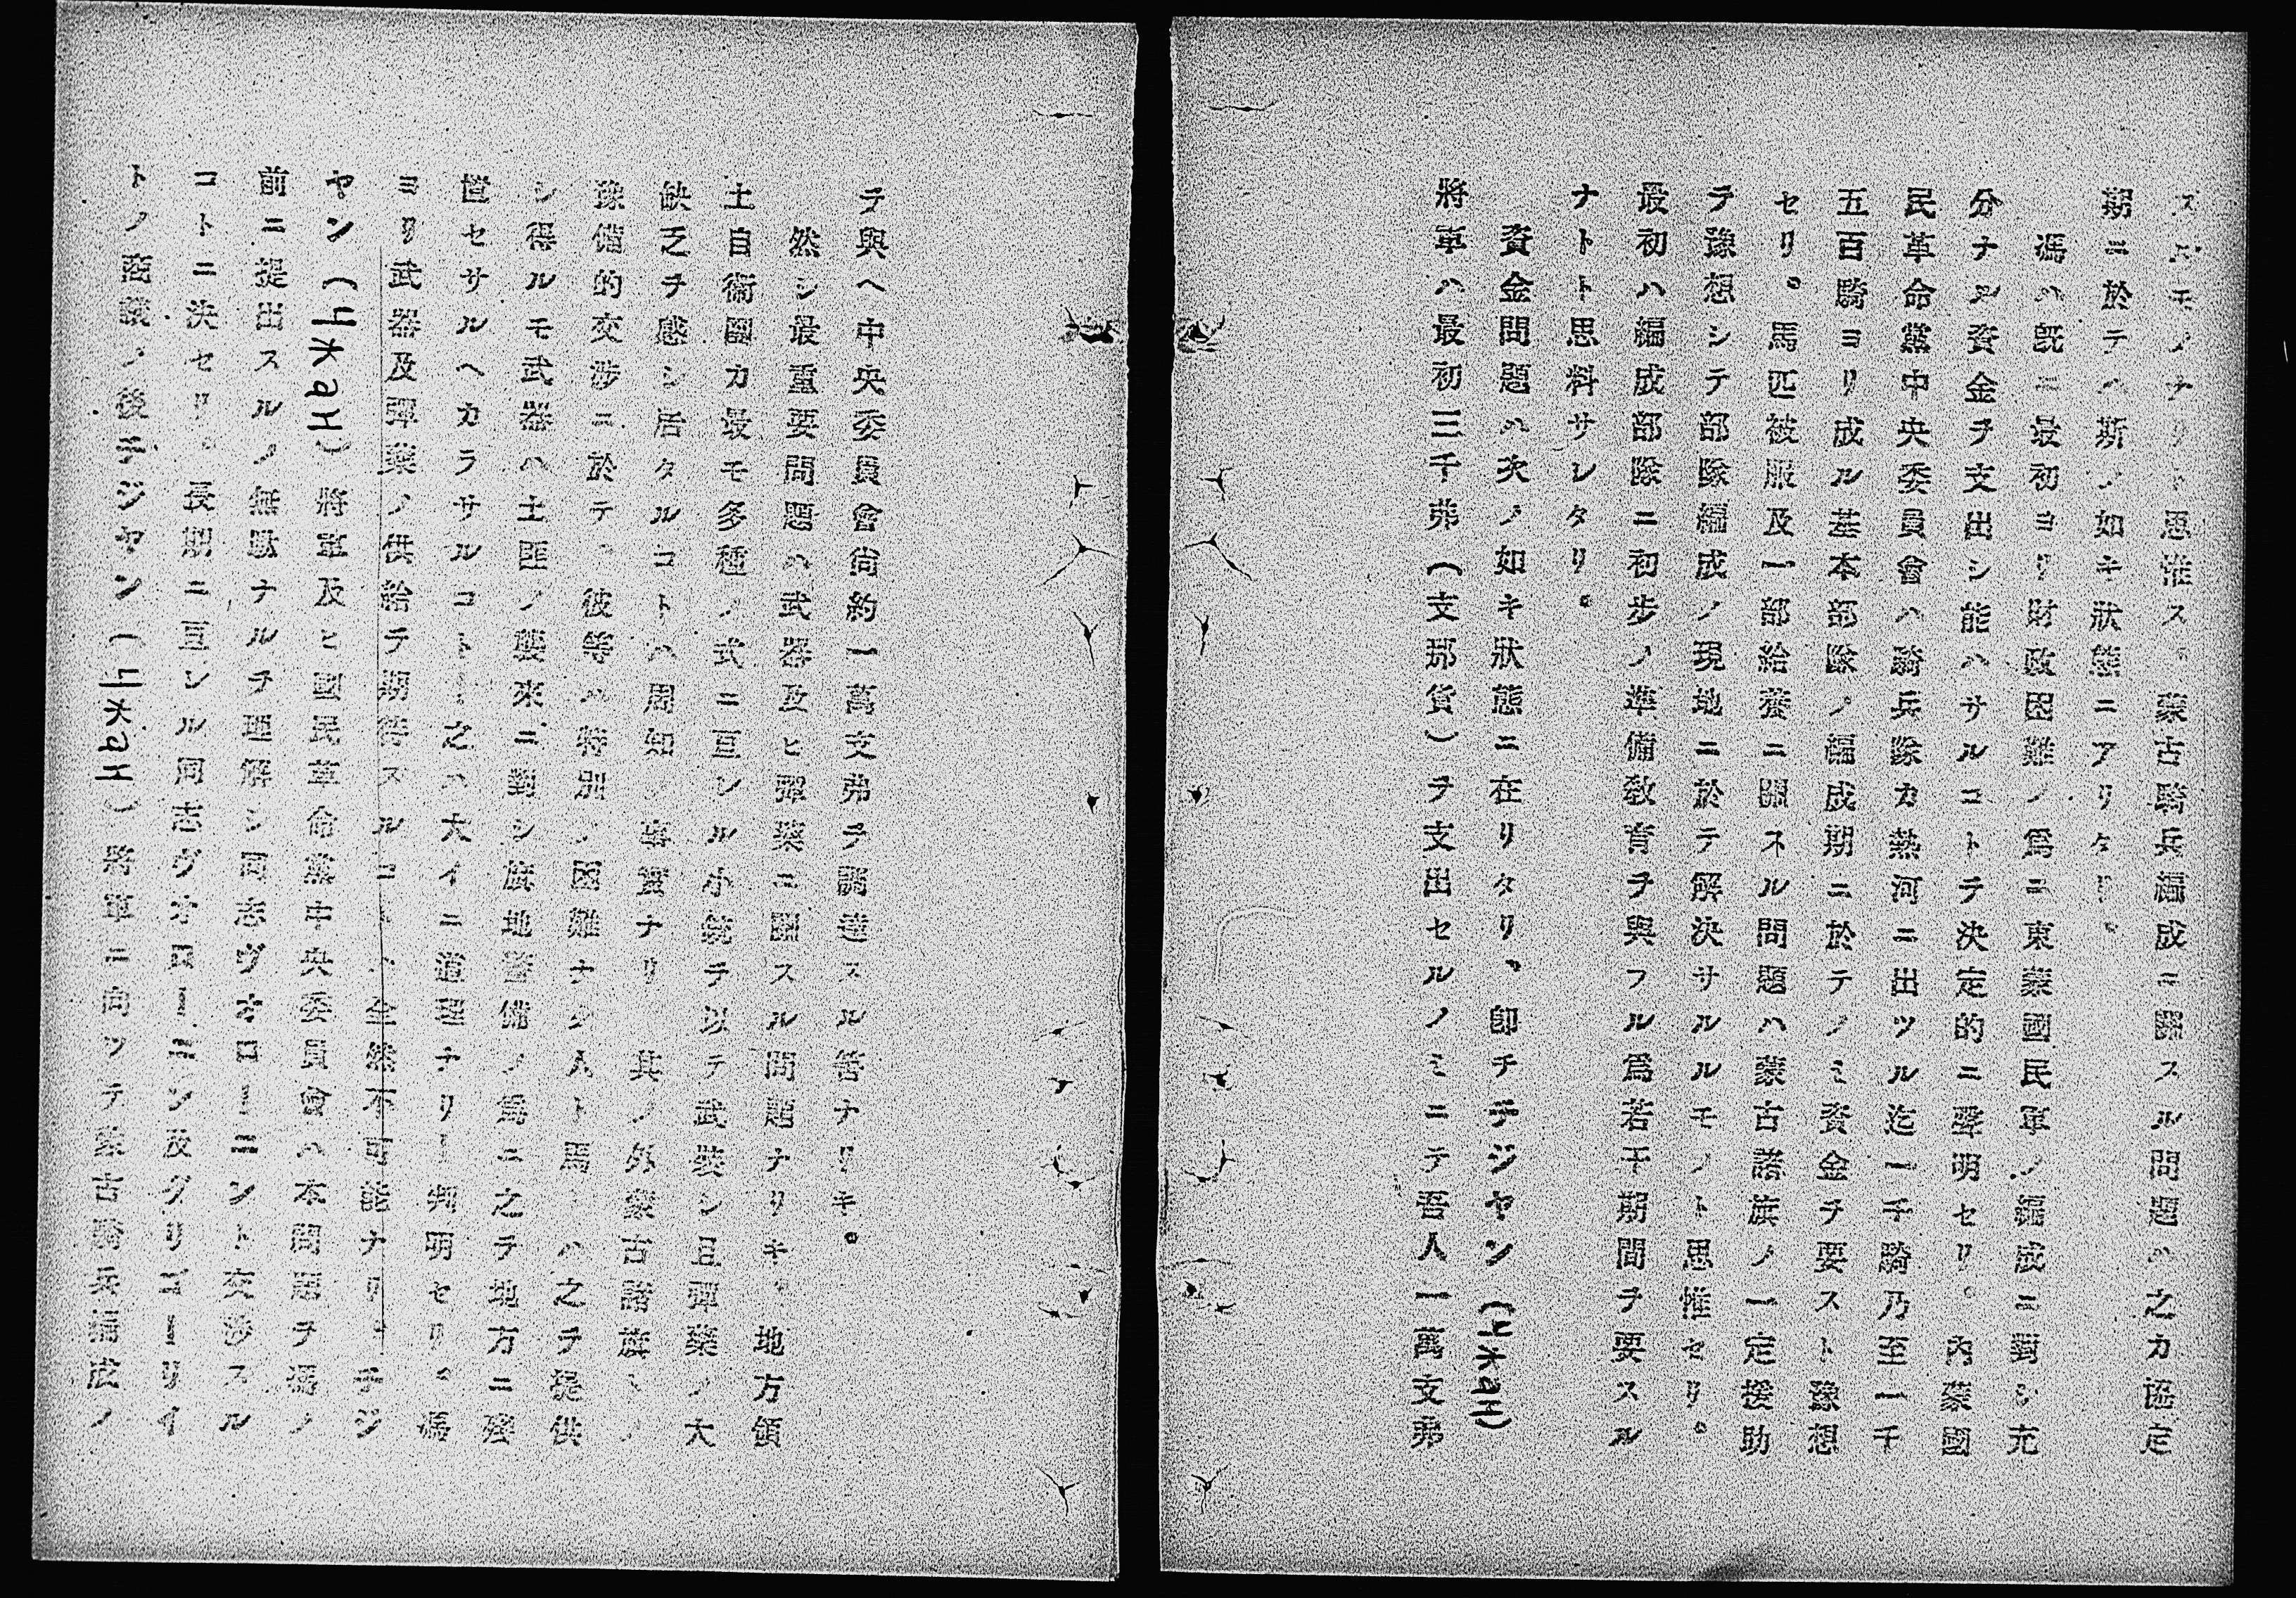 スルモノナリト思惟ス。蒙古騎兵編成ニ關スル問題ハ之カ協定
期ニ於テハ斯ノ如キ狀態ニアリタリ。
馮ハ旣ニ最初ヨリ財政困難ノ爲ニ東蒙國民軍ノ編成ニ對シ充
分ナル資金ヲ支出シ能ハサルコトヲ決定的ニ聲明セリ。內蒙國
民革命黨中央委員會ハ騎兵隊カ熱河ニ出ツル迄一千騎乃至一千
五百騎ヨリ成ル基本部隊ノ編成期ニ於テノミ資金ヲ要スト豫想
セリ。馬匹被服及一部給養ニ關スル問題ハ蒙古諸旗ノ一定援助
ヲ豫想シテ部隊編成ノ現地ニ於テ解決サルルモノト思惟セリ。
最初ハ編成部隊ニ初步ノ準備敎育ヲ與フル爲若干期間ヲ要スル
ナトト思料サレタリ。
資金問題ハ次ノ如キ狀態ニ在リタリ、卽チテジヤン(上大aエ)
將軍ハ最初三千弗(支那貨)ヲ支出セルノミニテ吾人一萬支弗
ヲ與ヘ中央委員會尙約一萬支弗ヲ調達スル筈ナリキ。
然シ最重要問題ハ武器及ヒ彈藥ニ關スル問題ナリキ、地方領
土自衞團カ最モ多種ノ式ニ亘レル小銃ヲ以テ武裝シ且彈藥ノ大
缺乏ヲ感シ居タルコトハ周知ノ事實ナリ 其ノ外蒙古諸旗トノ
豫備的交涉ニ於テ、彼等ハ特別ノ困難ナク人ト馬トハ之ヲ提供
シ得ルモ武器ハ土匪ノ襲來ニ對シ旗地警備ノ爲ニ之ヲ地方ニ殘
置セサルヘカラサルコトー之ハ大イニ道理ナリー判明セリ。馮
ヨリ武器及彈藥ノ供給ヲ期待スルコトハ全然不可能ナリ、テジ
ヤン(上大aエ)將軍及ヒ國民革命黨中央委員會ハ本問題ヲ馮ノ
前ニ提出スルノ無駄ナルヲ理解シ同志ヴオローニント交涉スル
コトニ決セリ。長期ニ亘レル同志ヴオローニン及グリゴーリイ
トノ商議ノ後テジヤン(上大aエ)將軍ニ向ツテ蒙古騎兵編成ノ